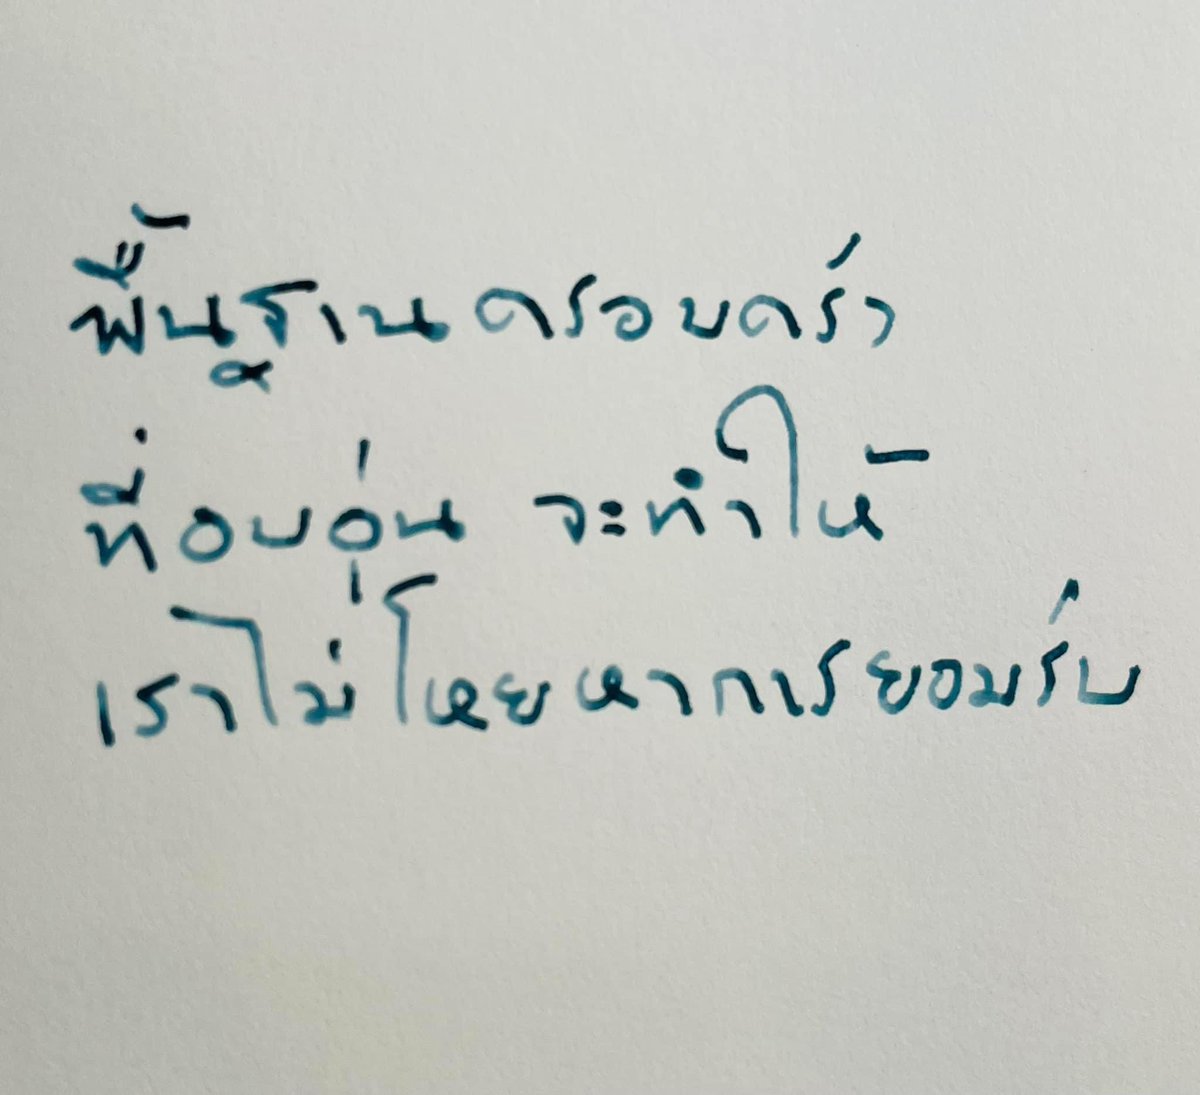 พื้นฐานครอบครัว
ที่อบอุ่น จะทำให้
เราไม่โหยหาการยอมรับ